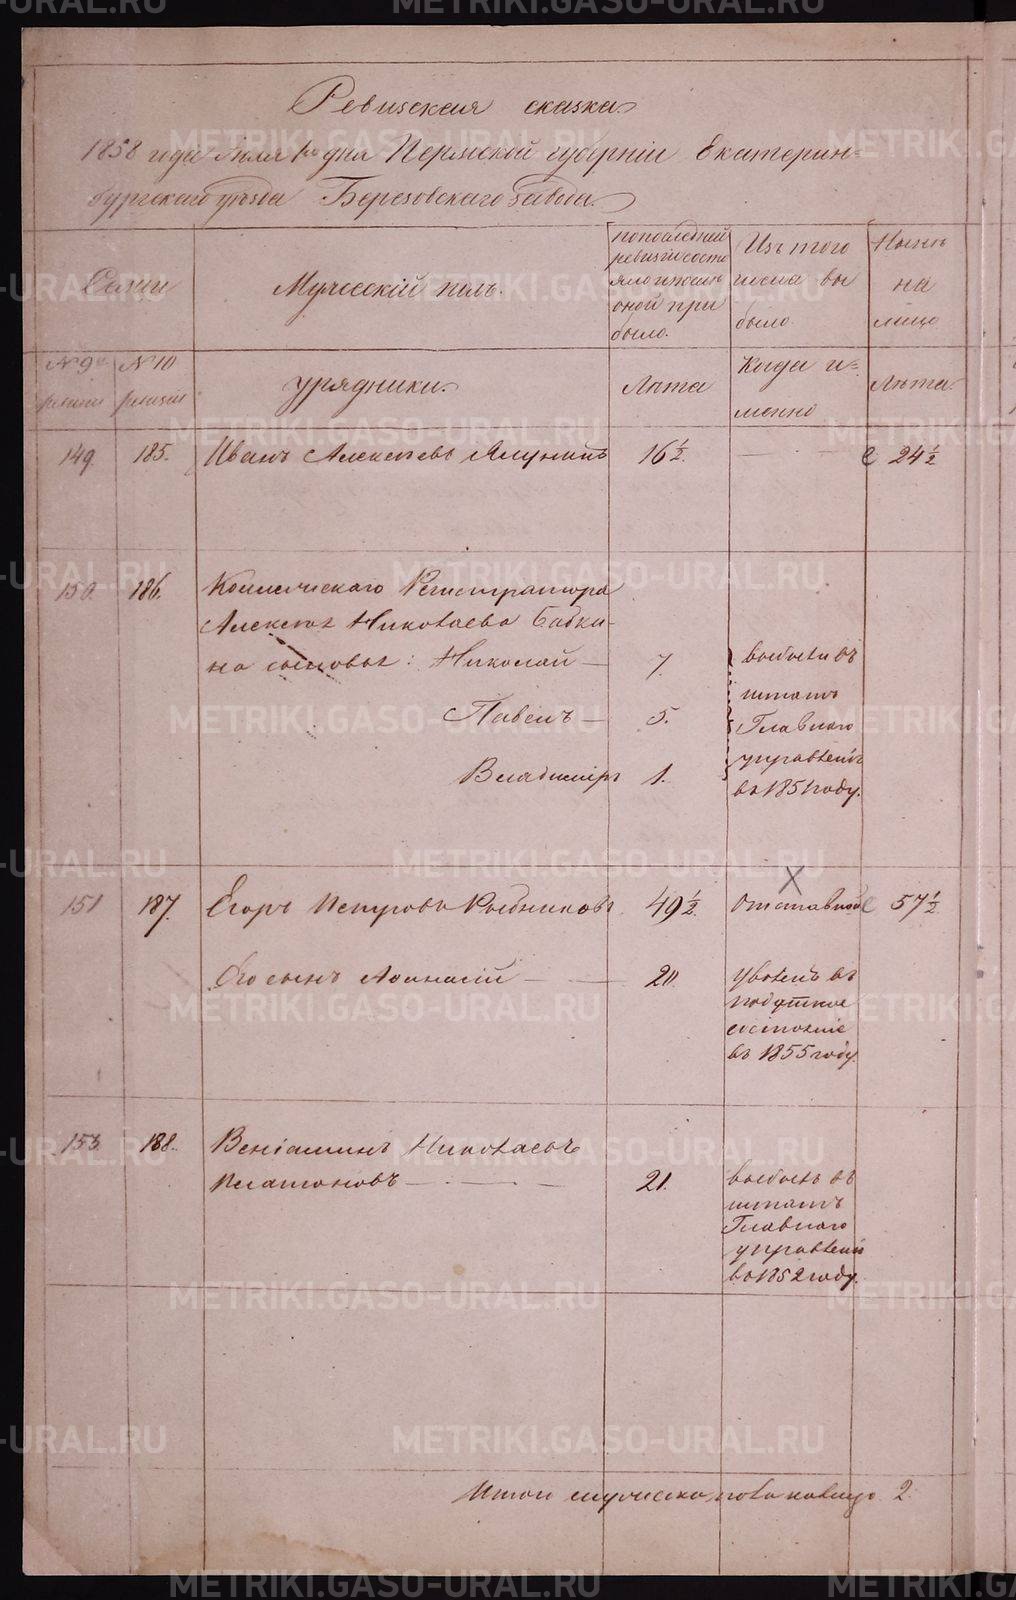 Ревизская сказка
1858 года Iюля 1го дня Пермской губернiи Екатерин-
бургского уѣзда Березовского завода.
Семьи
Мужескiй полъ.
по последней
ревизiи состо
яло и послѣ
оной при
было.
Изъ того
числа вы
было.
Нынѣ
на
лицо
№ 9й
ревизiи
№ 10
ревизiи
урядники.
Лѣта
Когда и-
менно
Лѣта.
149. 185. Иванъ Алексѣевъ Ялунинъ 16½. — — 24½
150. 186. Коллежскаго Регистратора
Алексѣя Николаева Бабки-
на сыновья: Николай — 7.
Павелъ — 5.
Владимiръ 1.
выбыли въ
штатъ
Главнаго
управленiя
въ 1851 году.
151 187. Егоръ Петровъ Рыбниковъ 49½. Отставной 57½
Его сынъ Афанасiй — 20.
уволенъ въ
податное
состоянiе
въ 1855 году.
153 188. Венiаминъ Николаевъ
Платоновъ — 21.
выбылъ въ
штатъ
Главнаго
управленiя
въ 1852 году.
Итого мужеска пола на лицо 2.
METRIKI.GASO-URAL.RU